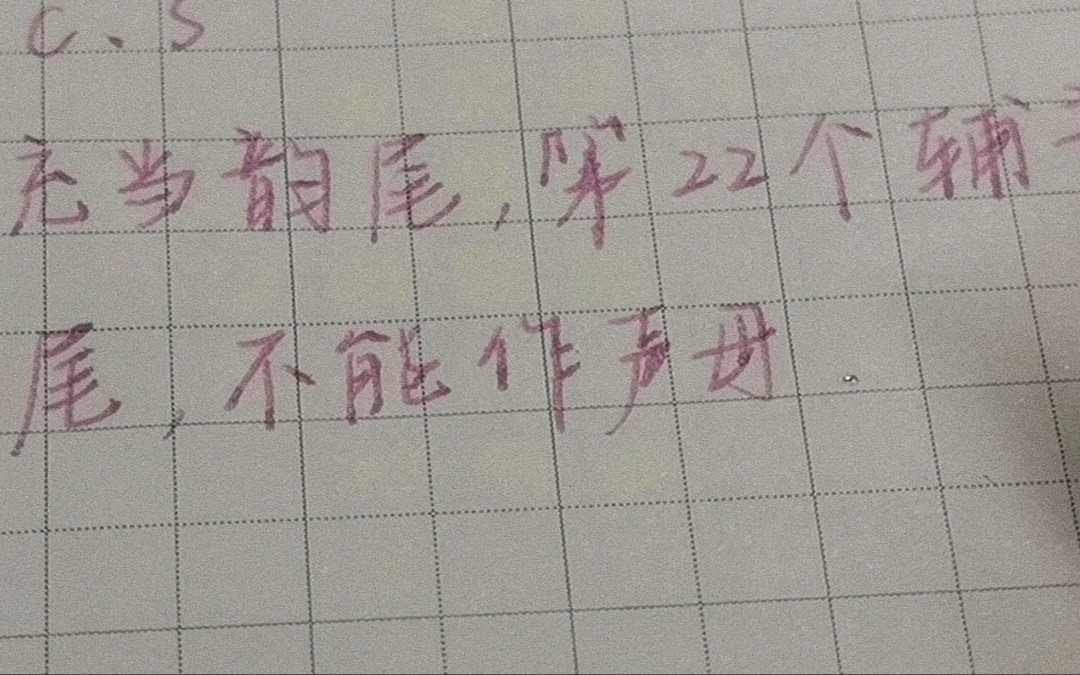 c、s
充当韵尾，第22个辅
尾，不能作声母.